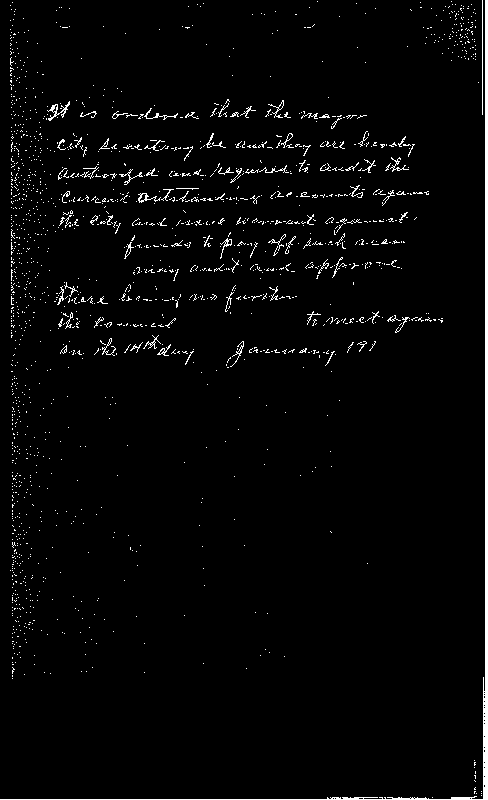 It is ordered that the mayor
City Secretary be and they are hereby
authorized and required to audit the
Current outstanding accounts against
the City and issue warrant against
funds to pay off such
may audit and approve
there being no further
the Council to meet again
on the 14th day January 191